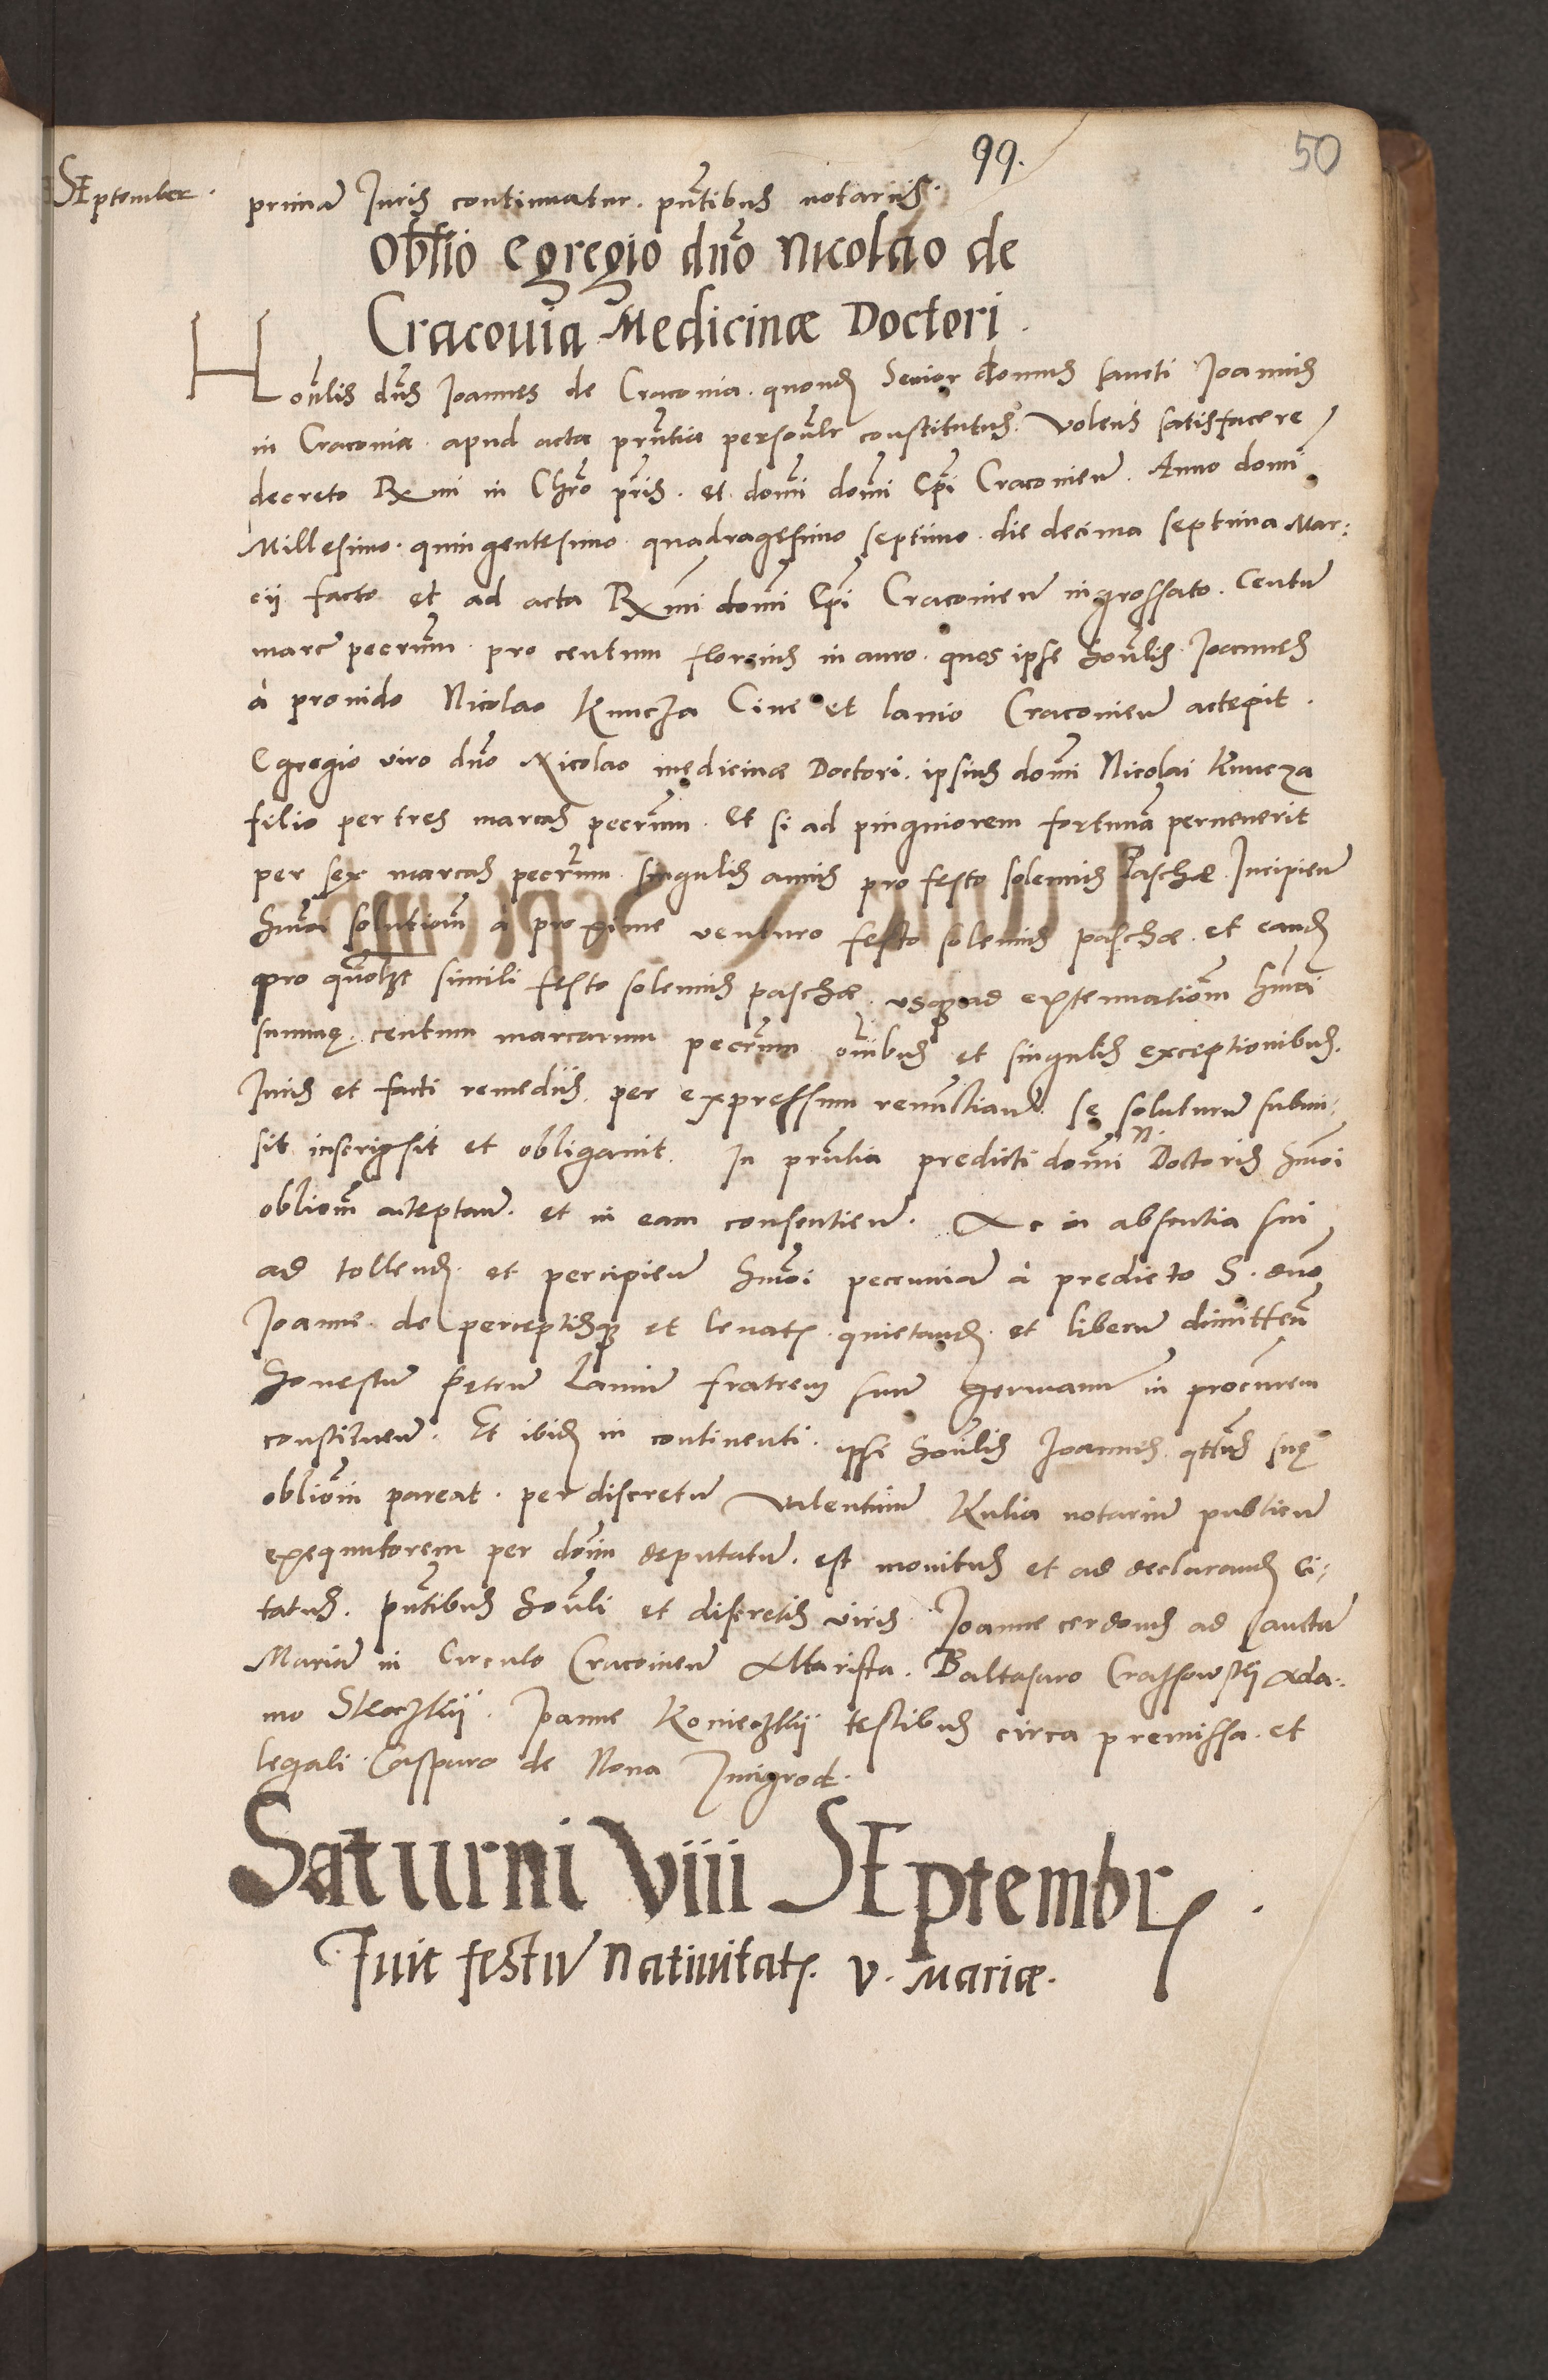 99.
50
SEptember.
primam Juris continuatur. pñtibus notariis.
Obłło egregio dño Nicolao de
Cracouia Medicinæ Doctori.
Honlis dñs Joannes de Cracouia. quond Senior domus sancti Joannis
in Cracouia. apud acta pñtia personlr constitutus. Volens satisfacere
decreto Rxmi in Chro pris. et. domi domi Epi Cracouien. Anno domi
Millesimo. quingentesimo. quadragesimo septimo. die decima septima Mar:
cii facto et ad acta Rxmi domi Epi Cracouien ingrossato. Centum
marc pecrum. pro centum florenis in auro. quos ipse honlis Joannes
à prouido Nicolao Kuncza Ciue et lanio Cracouien accepit.
Egregio viro dño Nicolao medicinæ Doctori. ipsius domi Nicolai Kuncza
filio per tres marcas pecrum. Et si ad pinguiorem fortunam peruenerit
per sex marcas pecrum. singulis annis pro festo solennis Paschæ. Incipien
hmoi solutiom à proxime venturo festo solennis paschæ. et eand
pro quolibet simili festo solennis paschæ. vsque ad extenuatiom hmoi
summę. centum marcarum pecrum omibus et singulis exceptionibus.
Juris et facti remediis. per expressum renunctiand. se soluturum submi:
sit inscripsit et obligauit. In pñtia predicti domi N. Doctoris hmoi
obliom acceptan. et in eam consentien. Ac in absentia sui
ad tollend. et percipien hmoi pecuniam à predicto S. dño
Joanne. de perceptisque et leuatis. quietand. et liberum dimitten
honestum petrum Lanium fratrem suum germanum in procurem
constituen. Et ibid in continenti. ipse honlis Joannes. qtnus suę
obliom pareat. per discretum Valentinum Kulia notarium publicum
exequutorem per domi deputatum. est monitus et ad declarand ci:
tatus. pñtibus honli et discretis viris. Joanne cerdonis ad sanctam
Mariam in Circulo Cracouien Altarista. Baltasaro Crassowski Ada:
mo Skoczkij. Joanne Konieczkij testibus circa premissa. et
legali Casparo de Noua Juigrod.
Saturni VIII SEptembris.
Fuit festum Natiuitatis. V. Mariæ.